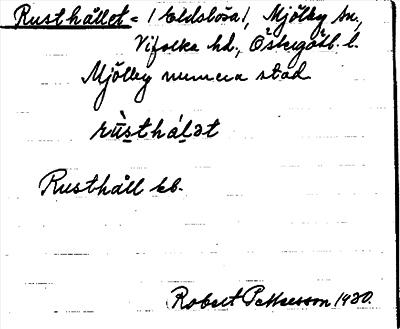 Rusthållet = (Eldslösa), Mjölby sn.,
Vifolka hd., Östergötl. l.
Mjölby numera stad
rùsthàḷət
Rusthåll kb.
Robert Pettersson 1930.